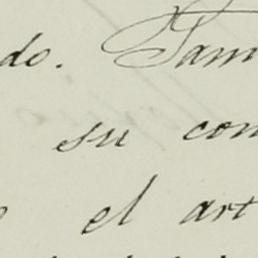 do. Tam
su con
el art